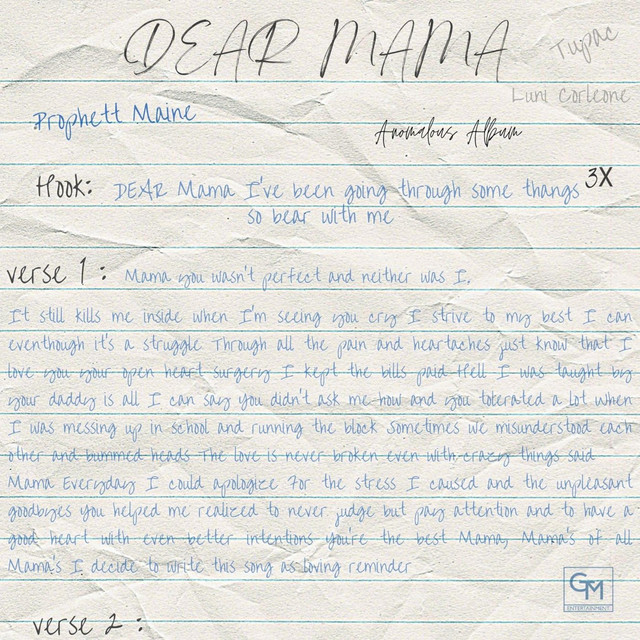 DEAR MAMA
Tupac
Luni Corleone
Prophett Maine
Anomalous Album
Hook: DEAR Mama I've been going through some thangs 3X
so bear with me
verse 1 : Mama you wasn't perfect and neither was I,
It still kills me inside when I'm seeing you cry I strive to my best I can
eventhough it's a struggle Through all the pain and heartaches just know that I
love you your open heart surgery I kept the bills paid Hell I was taught by
your daddy is all I can say you didn't ask me how and you tolerated a lot when
I was messing up in school and running the block Sometimes we misunderstood each
other and bummed heads The love is never broken even with crazy things said
Mama Everyday I could apologize For the stress I caused and the unpleasant
goodbyes you helped me realized to never judge but pay attention and to have a
good heart with even better intentions you're the best Mama, Mama's of all
Mama's I decide to write this song as loving reminder
GM
ENTERTAINMENT
verse 2 :